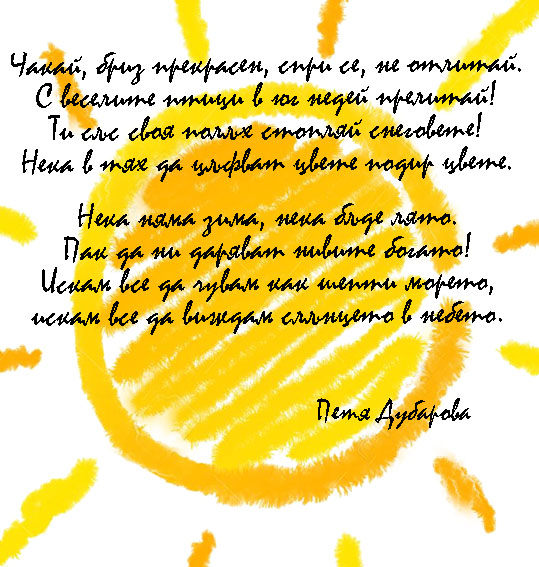 Чакай, бриз прекрасен, спри се, не отлитай.
С веселите птици в юг недей прелитай!
Ти със своя полъх стопляй снеговете!
Нека в тях да цъфват цвете подир цвете.
Нека няма зима, нека бъде лято.
Пак да ни даряват нивите богато!
Искам все да чувам как шепти морето,
искам все да виждам слънцето в небето.
Петя Дубарова